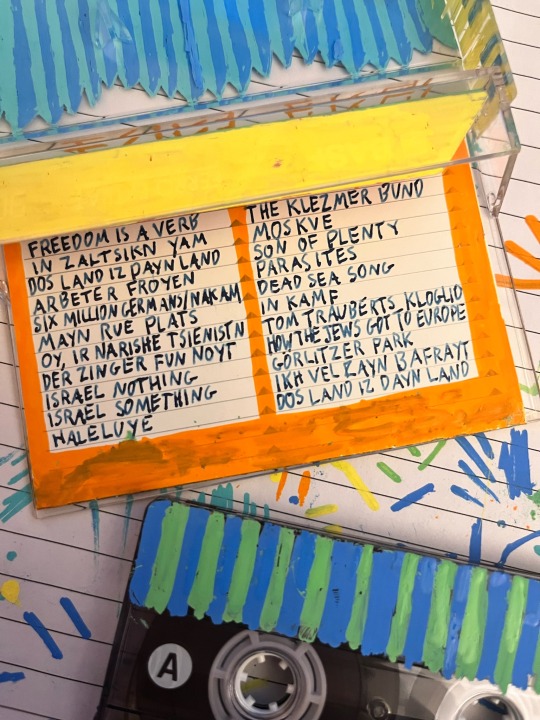 FREEDOM IS A VERB
IN ZALTSIKN YAM
DOS LAND IZ DAYN LAND
ARBETER FROYEN
SIX MILLION GERMANS/NAKAM
MAYN RUE PLATS
OY, IR NARISHE TSIENISTN
DER ZINGER FUN NOYT
ISRAEL NOTHING
ISRAEL SOMETHING
HALELUYE
THE KLEZMER BUND
MOSKVE
SON OF PLENTY
PARASITES
DEAD SEA SONG
IN KAMF
TOM TRAUBERTS KLOGLID
HOW THE JEWS GOT TO EUROPE
GÖRLITZER PARK
IKH VEL ZAYN BAFRAYT
DOS LAND IZ DAYN LAND
A